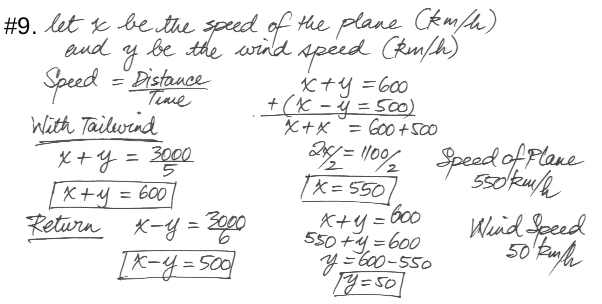 #9. let x be the speed of the plane (km/h)
and y be the wind speed (km/h)
Speed = Distance / Time
With Tailwind
x + y = 3000/5
x + y = 600
Return x - y = 3000/6
x - y = 500
x + y = 600
+ (x - y = 500)
x + x = 600 + 500
2x/2 = 1100/2
x = 550
x + y = 600
550 + y = 600
y = 600 - 550
y = 50
Speed of Plane
550 km/h
Wind Speed
50 km/h